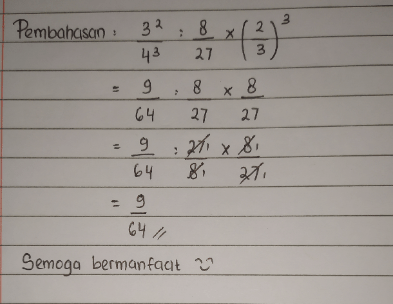 Pembahasan : 3²/4³ : 8/27 × (2/3)³
= 9/64 : 8/27 × 8/27
= 9/64 : 27/8 × 8/27
= 9/64 //
Semoga bermanfaat